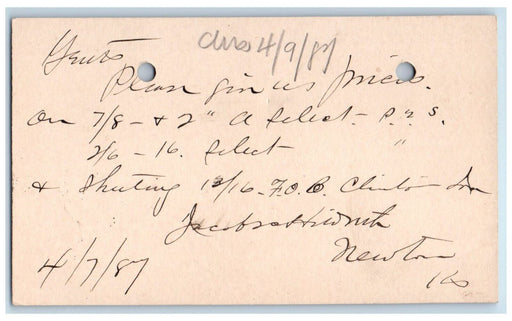 Gents
Ans 4/9/87
Please give us prices
on 7/8 - & 2" A Select - S. 2 S.
2/6 - 16. Select "
& Sheeting 12/16 - F.O.B. Clinton Ia
Jacobs & Hildreth
4/7/87
Newton
Ks